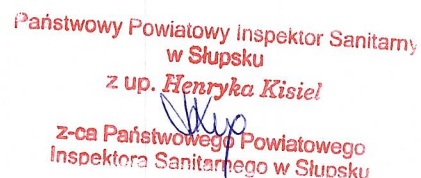 Państwowy Powiatowy Inspektor Sanitarny
w Słupsku
z up. Henryka Kisiel
z-ca Państwowego Powiatowego
Inspektora Sanitarnego w Słupsku